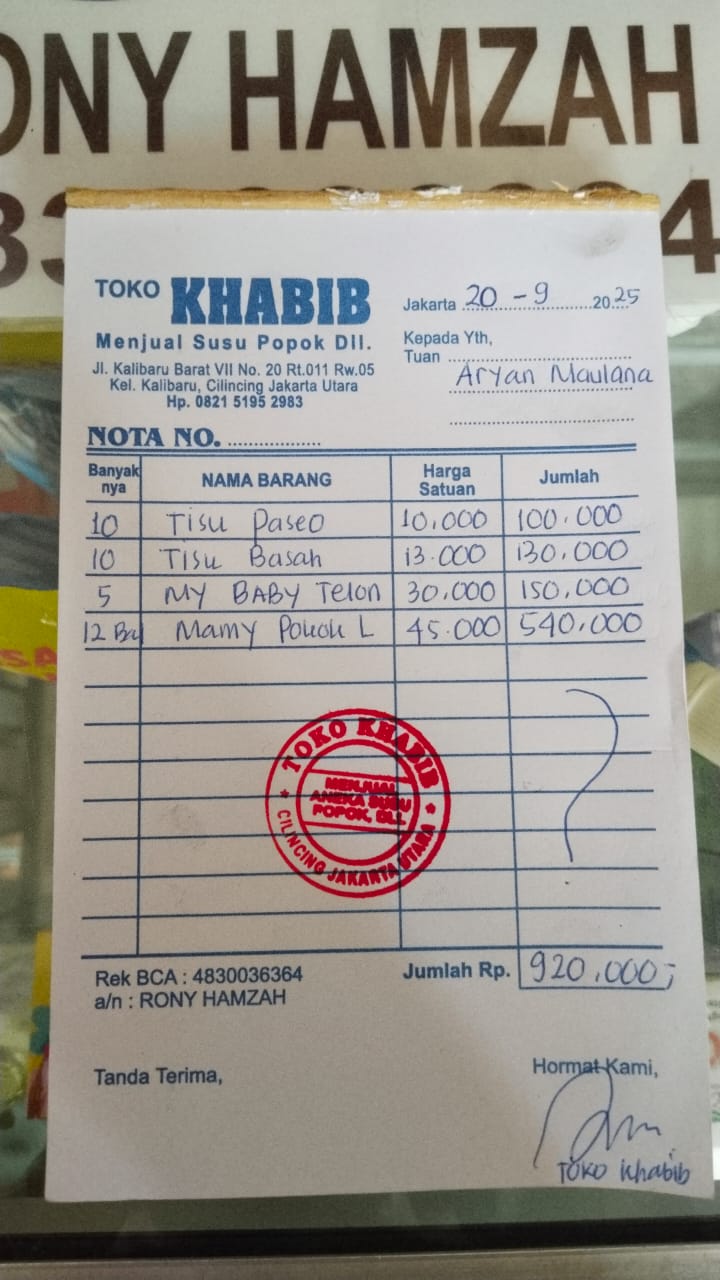 ONY HAMZAH
TOKO KHABIB
Menjual Susu Popok Dll.
Jl. Kalibaru Barat VII No. 20 Rt.011 Rw.05
Kel. Kalibaru, Cilincing Jakarta Utara
Hp. 0821 5195 2983
Jakarta 20 - 9 2025
Kepada Yth,
Tuan
Aryan Maulana
NOTA NO.
Banyak nya NAMA BARANG Harga Satuan Jumlah
10 Tisu Paseo 10.000 100.000
10 Tisu Basah 13.000 130.000
5 MY BABY Telon 30.000 150.000
12 Mamy Pokok L 45.000 540.000
TOKO KHABIB
MENJUAL
ANEKA SUSU
POPOK, DLL
CILINCING JAKARTA UTARA
Rek BCA : 4830036364
a/n : RONY HAMZAH
Jumlah Rp. 920.000,-
Tanda Terima,
Hormat Kami,
Toko Khabib